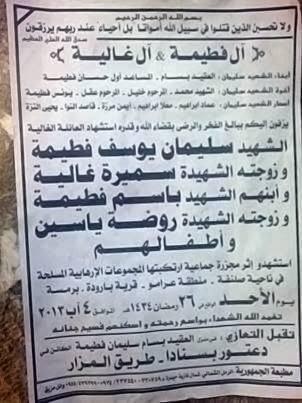 بسم الله الرحمن الرحيم
ولا تحسبن الذين قتلوا في سبيل الله أمواتا بل أحياء عند ربهم يرزقون
صدق الله العلي العظيم
﴿ آل فطيمة & آل غالية ﴾
أبناء الشهيد سليمان: العقيد بسام - المساعد أول حسان فطيمة
أشقاء الشهيد سليمان: الشهيد محمد - المرحوم خليل - المرحوم عقل - يونس فطيمة
أصهار الشهيد سليمان: عماد ابراهيم - معلا ابراهيم - أيمن مرزة - قاصد النوا - يحيى النزة
يزفون اليكم ببالغ الفخر والرضى بقضاء الله وقدره استشهاد العائلة الغالية
الشهيد سليمان يوسف فطيمة
و زوجته الشهيدة سميرة غالية
و أبنهم الشهيد باسم فطيمة
و زوجته الشهيدة روضة ياسين
و أطفالهم
استشهدو إثر مجزرة جماعية ارتكبتها المجموعات الإرهابية المسلحة
في ناحية سلنفة - منطقة عرامو - قرية بارودة - برمسة
يوم الأحد ٢٦ رمضان ١٤٣٤ هـ الموافق ٤ آب ٢٠١٣
تغمد الله الشهداء بواسع رحمته و أسكنهم فسيح جنانه
تقبل التعازي: في منزل العقيد بسام سليمان فطيمة الكائن في
دعتور بسنادا - طريق المزار
مطبعة الجمهورية